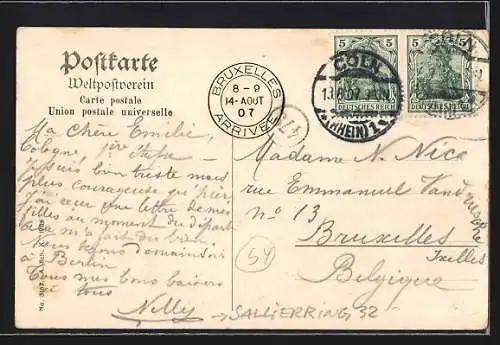 Postkarte
Weltpostverein
Carte postale
Union postale universelle
BRUXELLES
8-9
14-AOUT
07
ARRIVÉE
5 5
5 5
DEUTSCHES REICH
DEUTSCHES REICH
CÖLN
13.8.07
(RHEIN) 1
Ma chère Emilie,
Cologne 1ère étape
Je suis bien triste mais
plus courageuse qu'hier
J'ai reçu une lettre de mes
filles au moment du départ
cela m'a fait du bien
Nous serons demain soir
à Berlin
Tous mes bons baisers
à tous
Nelly
Madame N. Nice
rue Emmanuel Van
no 13
Bruxelles
Ixelles
Belgique
54
→ SALLIERRING 32